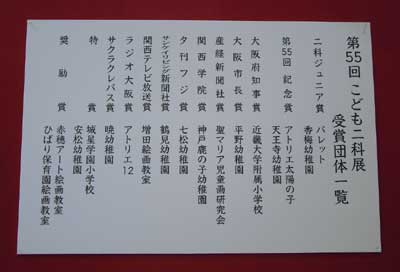 第55回 こども二科展
受賞団体一覧
二科ジュニア賞 パレット
香梅幼稚園
第55回 記念賞 アトリエ太陽の子
天王寺幼稚園
大阪府知事賞 近畿大学附属小学校
大阪市長賞 平野幼稚園
産経新聞社賞 聖マリア児童画研究会
関西学院賞 神戸鹿の子幼稚園
夕刊フジ賞 七松幼稚園
サンケイリビング新聞社賞 鶴見幼稚園
関西テレビ放送賞 増田絵画教室
ラジオ大阪賞 アトリエ12
サクラクレパス賞 暁幼稚園
特賞 城星学園小学校
安松幼稚園
奨励賞 赤穂アート絵画教室
ひばり保育園絵画教室